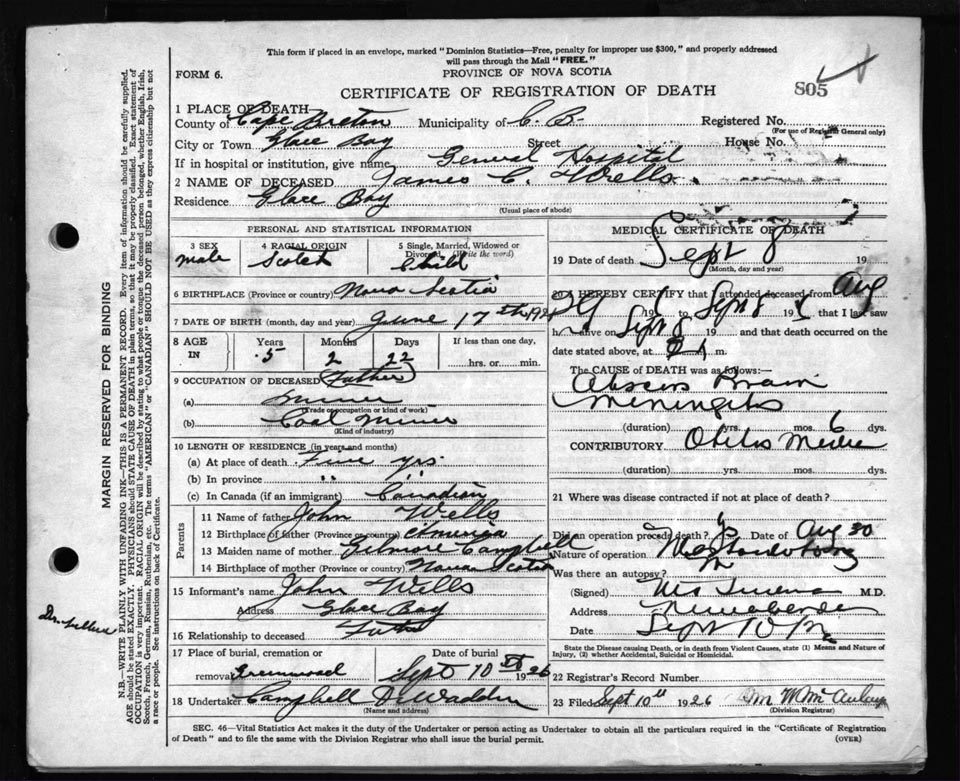 This form if placed in an envelope, marked "Dominion Statistics—Free, penalty for improper use $300," and properly addressed
will pass through the Mail "FREE."
FORM 6.
PROVINCE OF NOVA SCOTIA
CERTIFICATE OF REGISTRATION OF DEATH
805
1 PLACE OF DEATH
County of Cape Breton Municipality of C. B. Registered No.
(For use of Registrar General only)
City or Town Glace Bay Street House No.
If in hospital or institution, give name General Hospital
2 NAME OF DECEASED James C. Wells
Residence Glace Bay
(Usual place of abode)
PERSONAL AND STATISTICAL INFORMATION
3 SEX 4 RACIAL ORIGIN 5 Single, Married, Widowed or
Divorced (Write the word)
male Scotch Child
6 BIRTHPLACE (Province or country) Nova Scotia
7 DATE OF BIRTH (month, day and year) June 17th 1921
8 AGE IN Years Months Days If less than one day,
5 2 22 hrs. or min.
9 OCCUPATION OF DECEASED (Father)
(a) Miner
(Trade occupation or kind of work)
(b) Coal Miner
(Kind of industry)
10 LENGTH OF RESIDENCE (in years and months)
(a) At place of death Five yrs
(b) In province " "
(c) In Canada (if an immigrant) Canadian
Parents
11 Name of father John Wells
12 Birthplace of father (Province or country) America
13 Maiden name of mother Campbell
14 Birthplace of mother (Province or country) Nova Scotia
15 Informant's name John Wells
Address Glace Bay
16 Relationship to deceased Father
17 Place of burial, cremation or Date of burial
removal Greenwood Sept 10 1926
18 Undertaker Campbell
(Name and address)
MEDICAL CERTIFICATE OF DEATH
19 Date of death Sept 8 19
(Month, day and year)
20 I HEREBY CERTIFY that I attended deceased from Aug
29 19 to Sept 8 19 that I last saw
h alive on Sept 8 19 and that death occurred on
date stated above, at m.
The CAUSE OF DEATH was as follows:—
Abscess Brain
Meningitis
(duration) yrs. mos. 6 dys.
CONTRIBUTORY Otitis Media
(duration) yrs. mos. dys.
21 Where was disease contracted if not at place of death?
Did an operation precede death? Yes Date of Aug 30
Nature of operation
Was there an autopsy?
(Signed) M.D.
Address
Date Sept 10
State the Disease causing Death, or in death from Violent Causes, state (1) Means and Nature of
Injury, (2) whether Accidental, Suicidal or Homicidal.
22 Registrar's Record Number
23 Filed Sept 10th 1926
(Division Registrar)
SEC. 46—Vital Statistics Act makes it the duty of the Undertaker or person acting as Undertaker to obtain all the particulars required in the "Certificate of Registration
of Death" and to file the same with the Division Registrar who shall issue the burial permit.
(OVER)
MARGIN RESERVED FOR BINDING
N.B.—WRITE PLAINLY WITH UNFADING INK—THIS IS A PERMANENT RECORD. Every item of information should be carefully supplied.
AGE should be stated EXACTLY. PHYSICIANS should STATE CAUSE OF DEATH in plain terms, so that it may be properly classified. Exact statement of
OCCUPATION is very important. RACIAL ORIGIN will be described by stating to what people or tongue the deceased person belonged, whether English, Irish,
Scotch, French, German, Russian, Ruthenian, etc. The terms "AMERICAN" or "CANADIAN" SHOULD NOT BE USED as they express citizenship but not
a race or people. See instructions on back of Certificate.